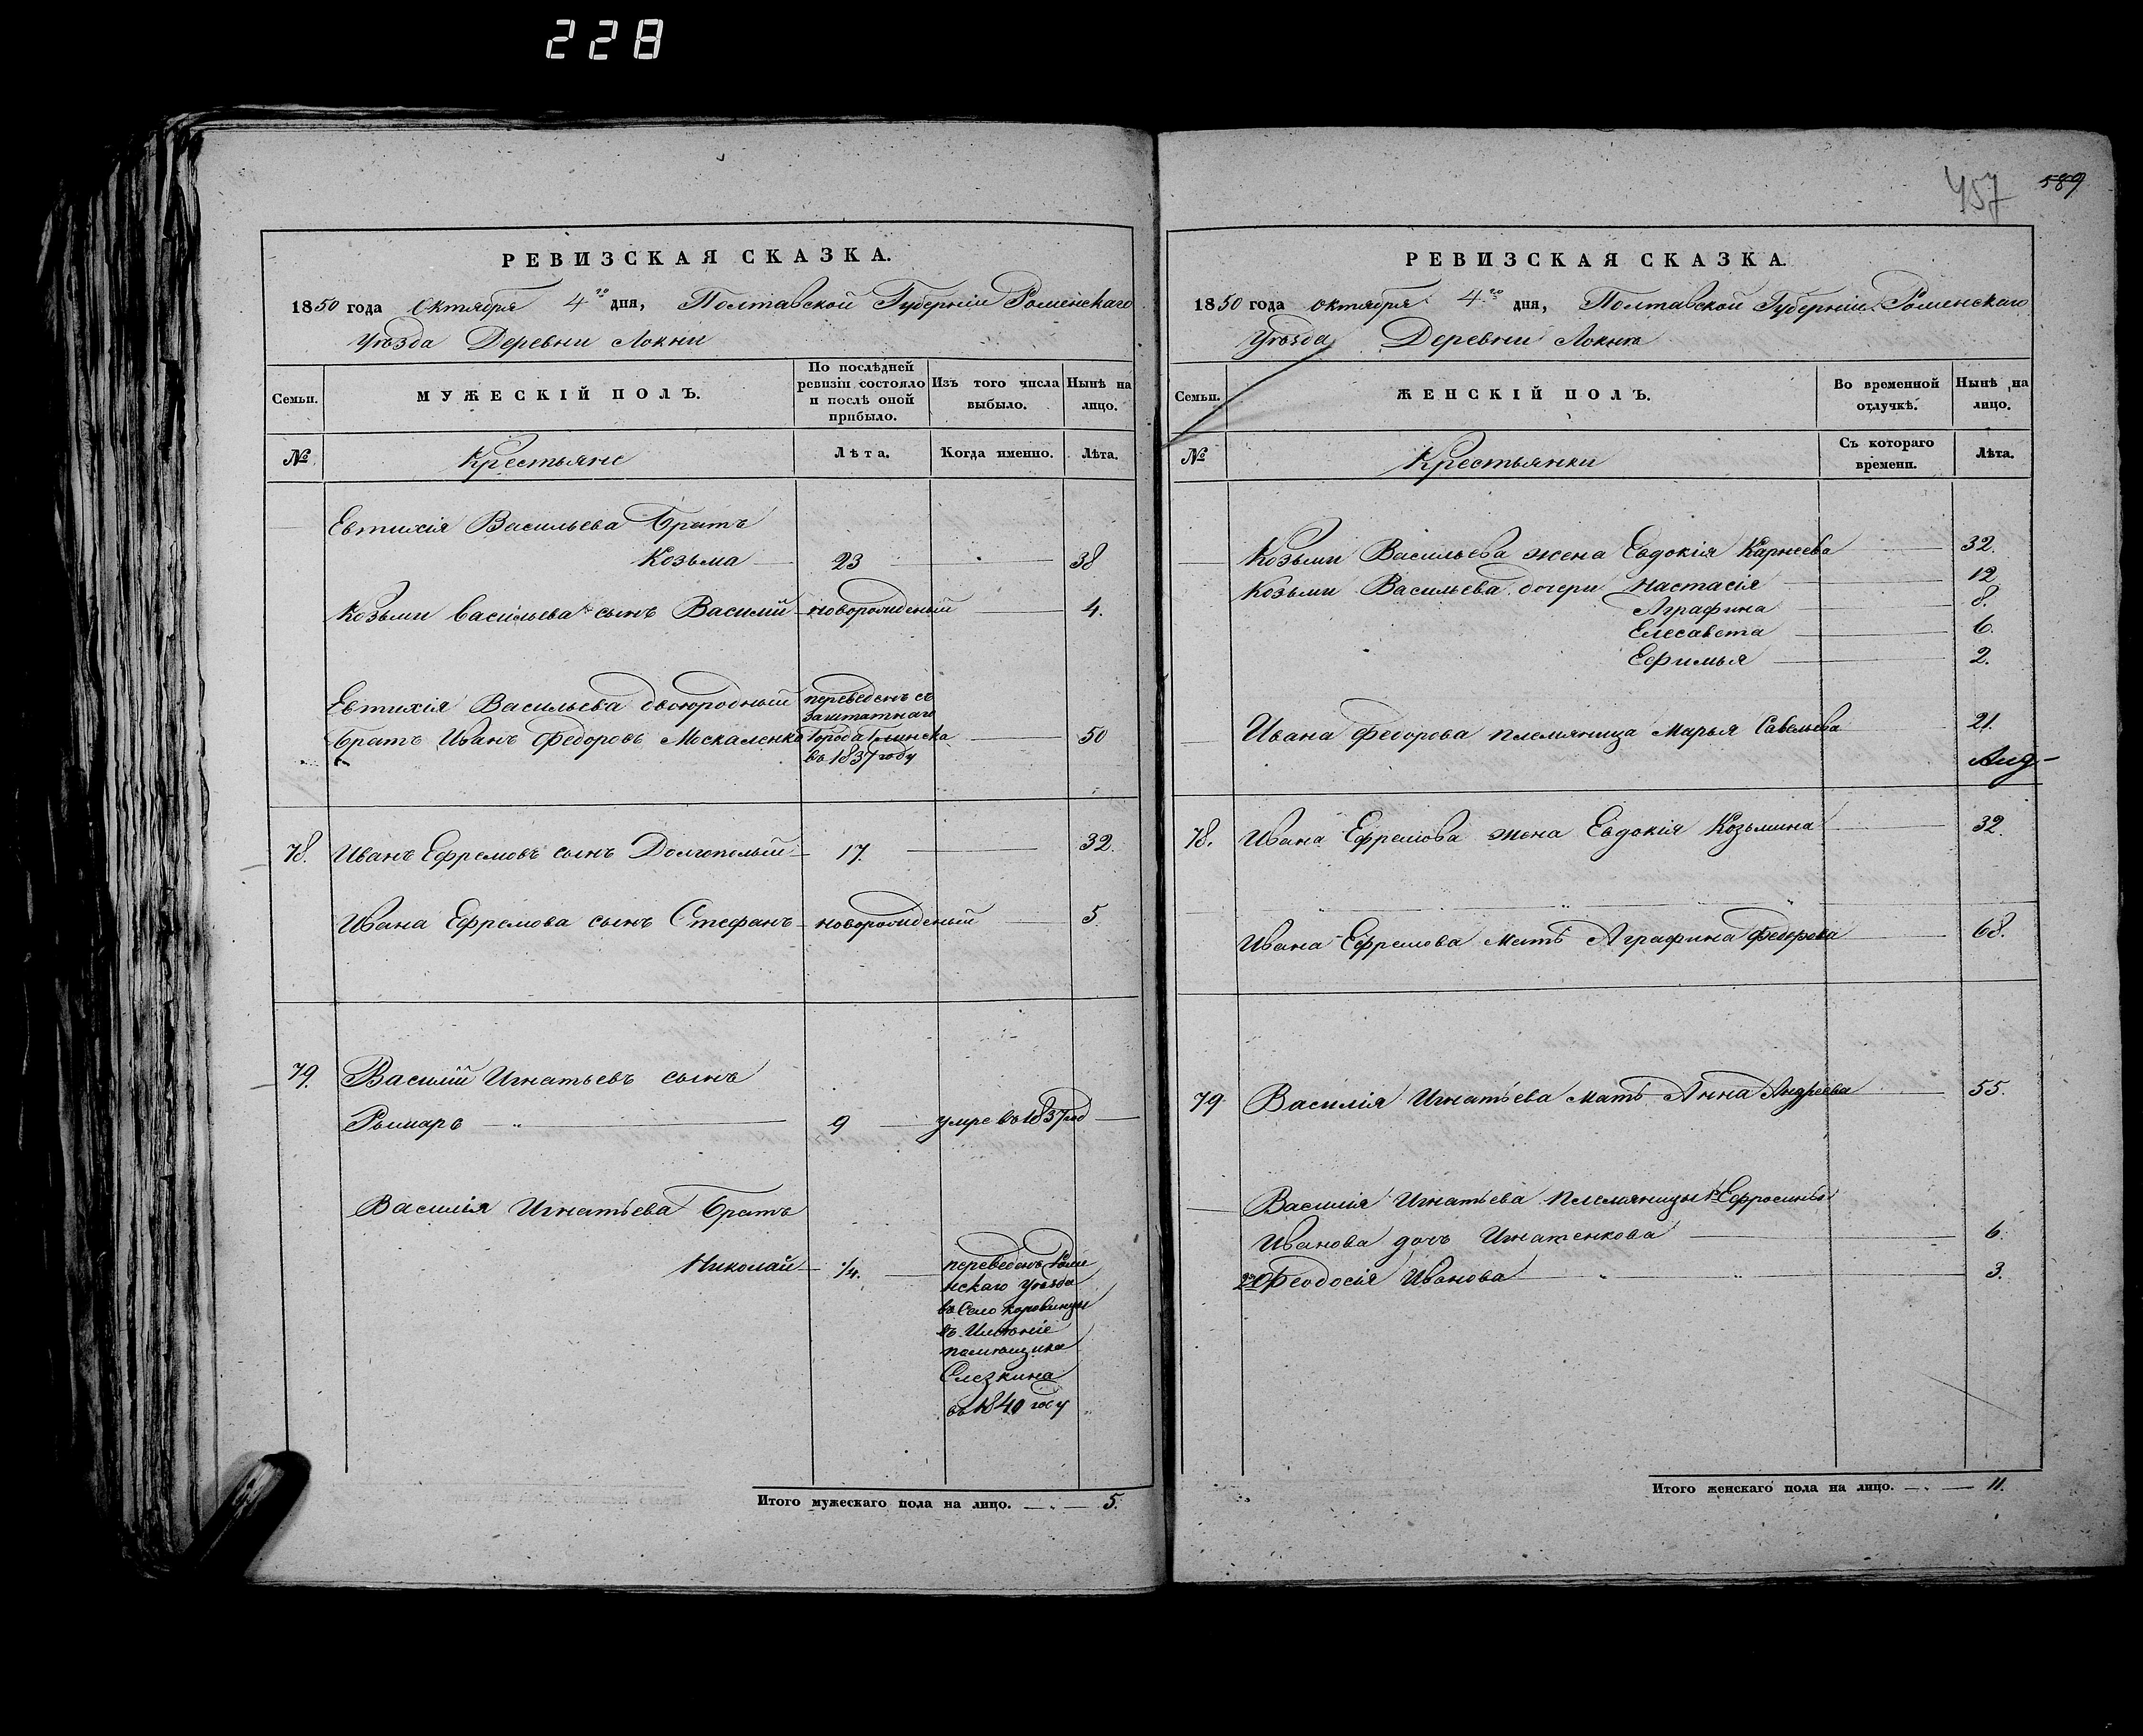 228
457 589
РЕВИЗСКАЯ СКАЗКА.
1850 года Октября 4го дня, Полтавской Губерніи Роменскаго
Уѣзда Деревни Локни
Семьи.
МУЖЕСКІЙ ПОЛЪ.
По послѣдней ревизіи состояло и послѣ оной прибыло.
Изъ того числа выбыло.
Нынѣ на лицо.
№ Крестьяне Лѣта. Когда именно. Лѣта.
Евтихія Васильева Братъ
Козьма 23 38
Козьмы Васильева сынъ Василій новорожденый 4.
Евтихія Васильева двоюродный переведенъ съ
заштатнаго
братъ Иванъ Федоровъ Москаленко города Глинска 50
въ 1837 году
78. Иванъ Ефремовъ сынъ Долгополый 17. 32.
Ивана Ефремова сынъ Стефанъ новорожденый 5
79. Василій Игнатьевъ сынъ
Рымарь " 9 умре въ 1837 год
Василія Игнатьева братъ
Николай 1/4. переведенъ Роме
нскаго уѣзда
въ Село Коровинцы
въ Имѣніе
помѣщика
Слезкина
въ 1840 году
Итого мужескаго пола на лицо. 5.
РЕВИЗСКАЯ СКАЗКА.
1850 года октября 4го дня, Полтавской Губерніи Роменскаго
Уѣзда Деревни Локни
Семьи.
ЖЕНСКІЙ ПОЛЪ.
Во временной отлучкѣ.
Нынѣ на лицо.
№ Крестьянки Съ котораго времени. Лѣта.
Козьмы Васильева жена Евдокія Карнеева 32.
Козьмы Васильева дочери Настасія 12
Аграфина 8.
Елесавета 6.
Ефимья 2.
Ивана Федорова племяница Марья Савельева 21.
78. Ивана Ефремова жена Евдокія Козьмина 32.
Ивана Ефремова мать Аграфина Федорова 68.
79. Василія Игнатьева мать Анна Андреева 55.
Василія Игнатьева племяницы 1я Ефросинья
Иванова дочь Игнатенкова 6.
2я Феодосія Иванова " " 3.
Итого женскаго пола на лицо. 11.